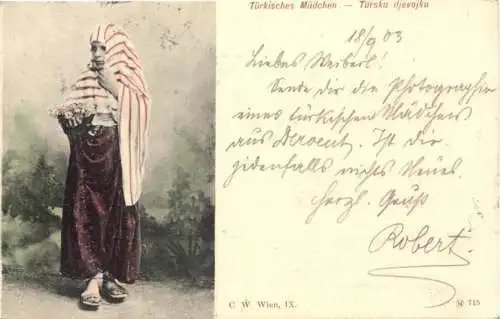 Türkisches Mädchen — Turska djevojka
18/9 03
Liebes Weiberl!
Sende dir die Photographie
eines türkischen Mädchens
aus Dervent. Ist dir
jedenfalls nichts Neues.
Herzl. Gruß
Robert.
C. W. Wien, IX.
M 715